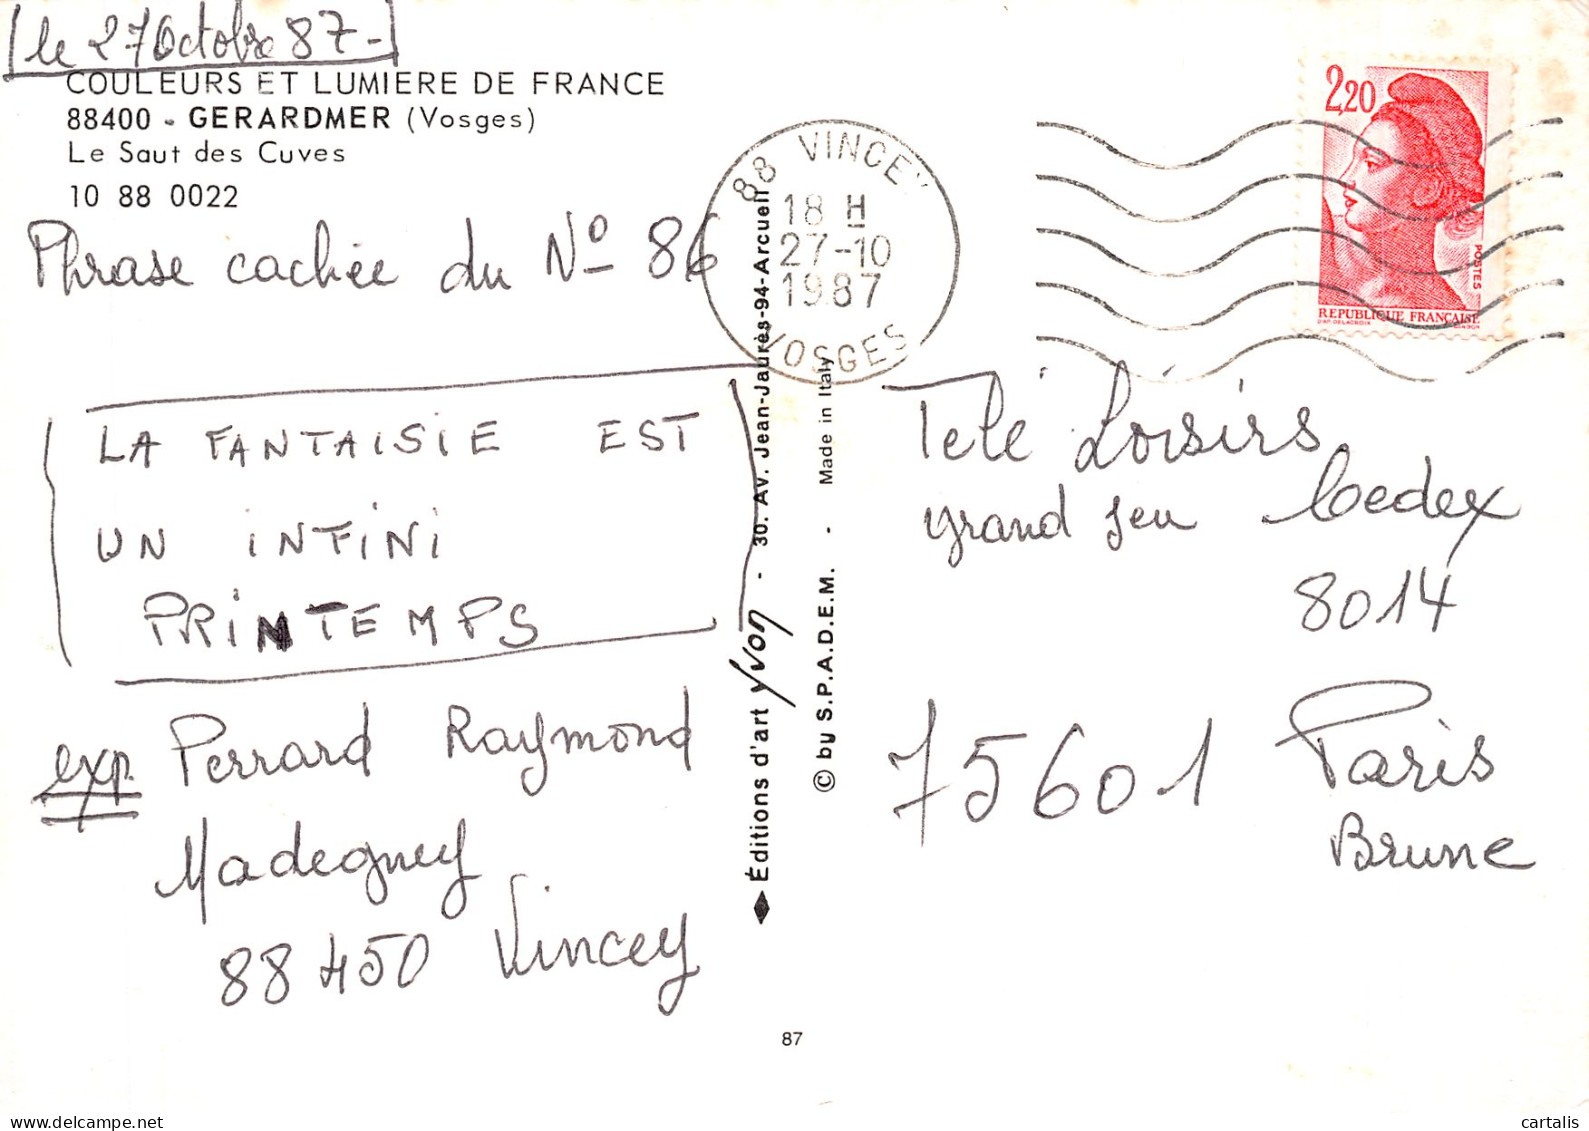 le 27 Octobre 87-
COULEURS ET LUMIERE DE FRANCE
88400 - GERARDMER (Vosges)
Le Saut des Cuves
10 88 0022
Phrase cachée du Nº 86
LA FANTAISIE EST
UN INFINI
PRINTEMPS
exp Perrard Raymond
Madegney
88450 Vincey
88 VINCEY
18 H
27-10
1987
VOSGES
◆ Éditions d'art Yvon - 30. Av. Jean-Jaurès-94-Arcueil
© by S.P.A.D.E.M. - Made in Italy
87
2,20
POSTES
REPUBLIQUE FRANÇAISE
D'AP. DELACROIX
Télé Loisirs
grand jeu Cedex
8014
75601 Paris
Brune
cartalis